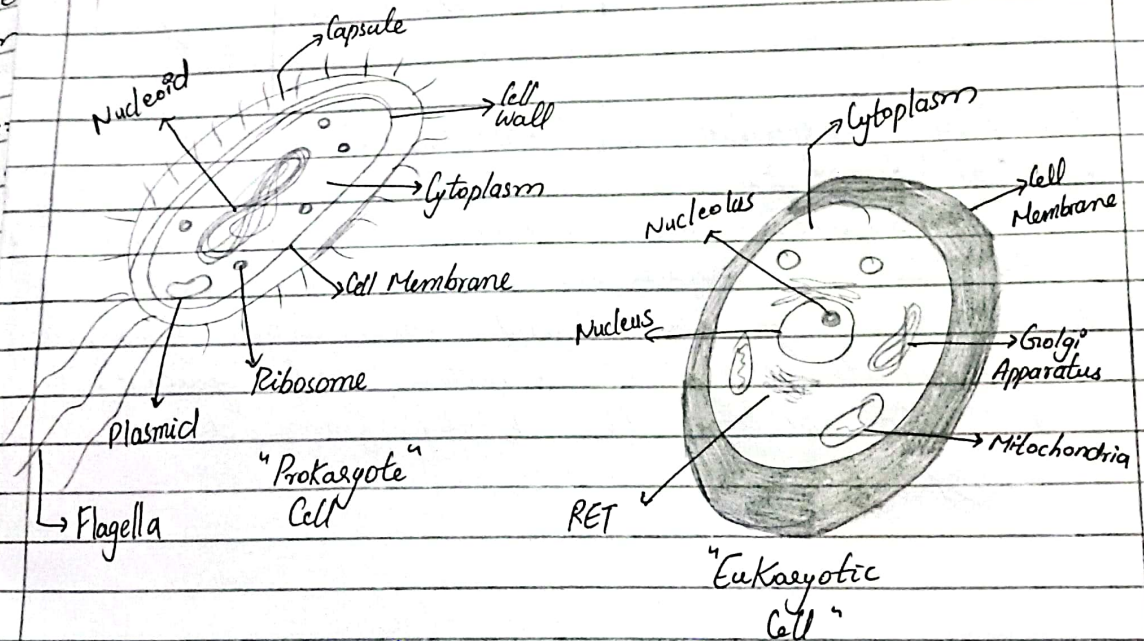 Capsule
Nucleoid
Cell
Wall
Cytoplasm
Cell Membrane
Ribosome
Plasmid
Flagella
"Prokaryote"
Cell
Cytoplasm
Cell
Membrane
Nucleolus
Nucleus
Golgi
Apparatus
Mitochondria
RET
"Eukaryotic
Cell"